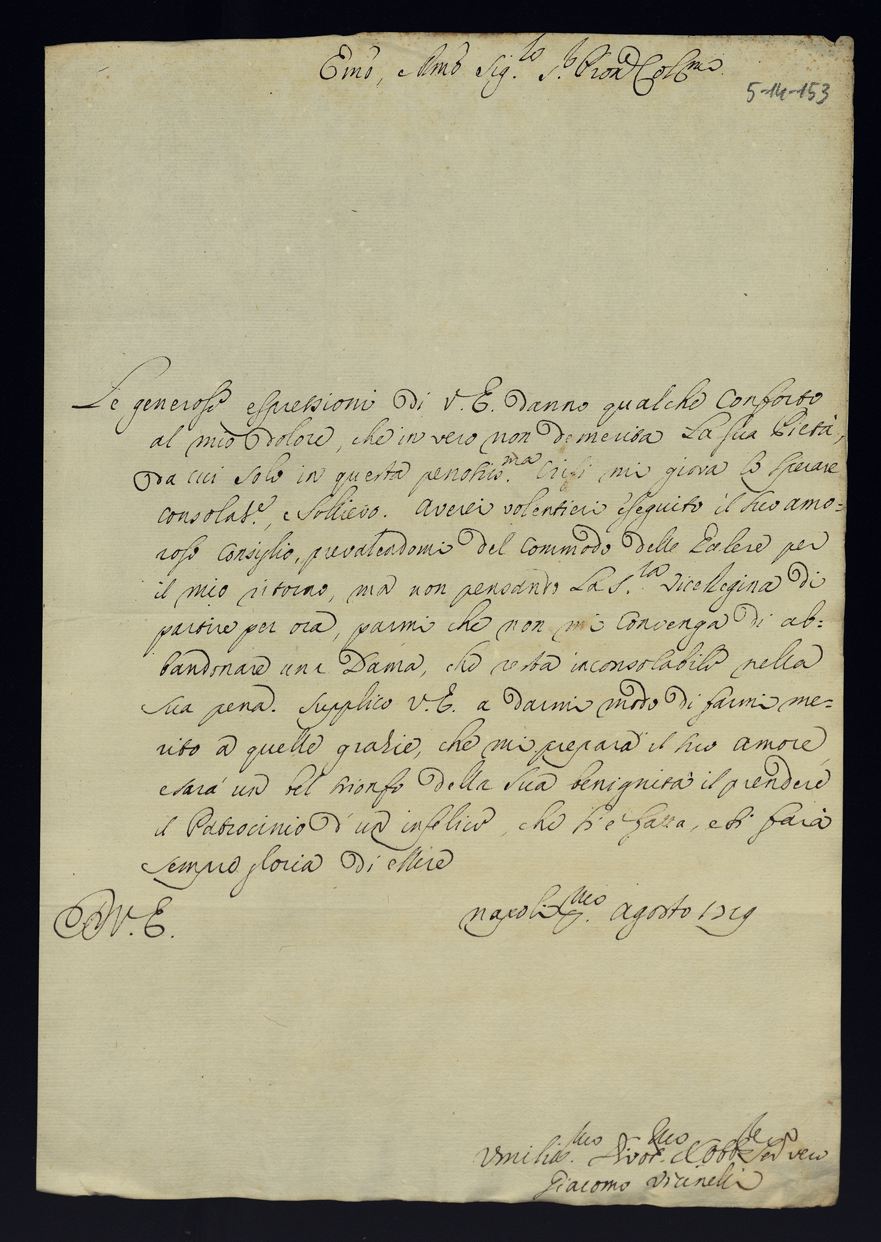 Emo, e Rmo Sig.re P.ron Col.mo
5-14-153
Le generose espressioni di V.E. danno qualche conforto
al mio dolore, che in vero non demerita la sua Pietà,
da cui solo in questa penosiss.ma Crisi mi giova lo sperare
consolat.e, e sollievo. Averei volentieri eseguito il suo amo=
roso consiglio, prevalendomi del commodo delle Galere per
il mio ritorno, ma non pensando la S.ra ViceRegina di
partire per ora, parmi che non mi convenga di ab=
bandonare una Dama, che resta inconsolabile nella
sua pena. Supplico V.E. a darmi modo di farmi me=
rito a quelle grazie, che mi prepara il suo amore
e sarà un bel trionfo della sua benignità il prendere
il Patrocinio d'un infelice, che si è fatta, e si farà
sempre gloria di essere
D V.E.
Napoli Agosto 1719
Umiliss.mo Divot.mo et Obb.mo Ser.e vero
Giacomo Vicinelli